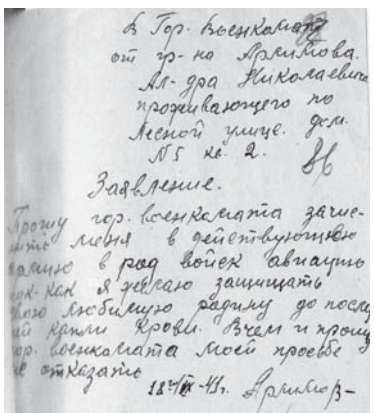 В Гор. Военкомат
от гр-на Аримова.
Ал-дра Николаевича
проживающего по
Лесной улице. дом.
№5 кв. 2.
Заявление.
Прошу гор. военкомата зачис-
лить меня в действующюю
армию в род войск авиацию
так-как я желаю защищать
свою любимую родину до послед
ней капли крови. Вчем и прошу
гор. военкомата моей просьбе
не отказать
Аримов-